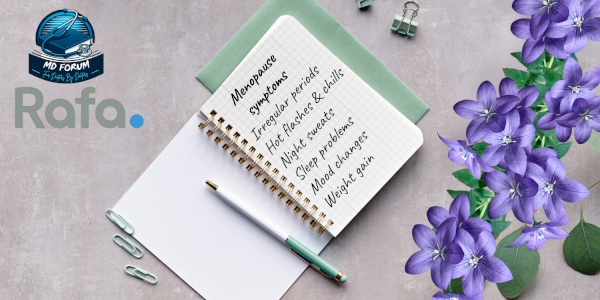 MD FORUM
For Doctors By Doctors
Rafa.
Menopause
symptoms
Irregular periods
Hot flashes & chills
Night sweats
Sleep problems
Mood changes
Weight gain